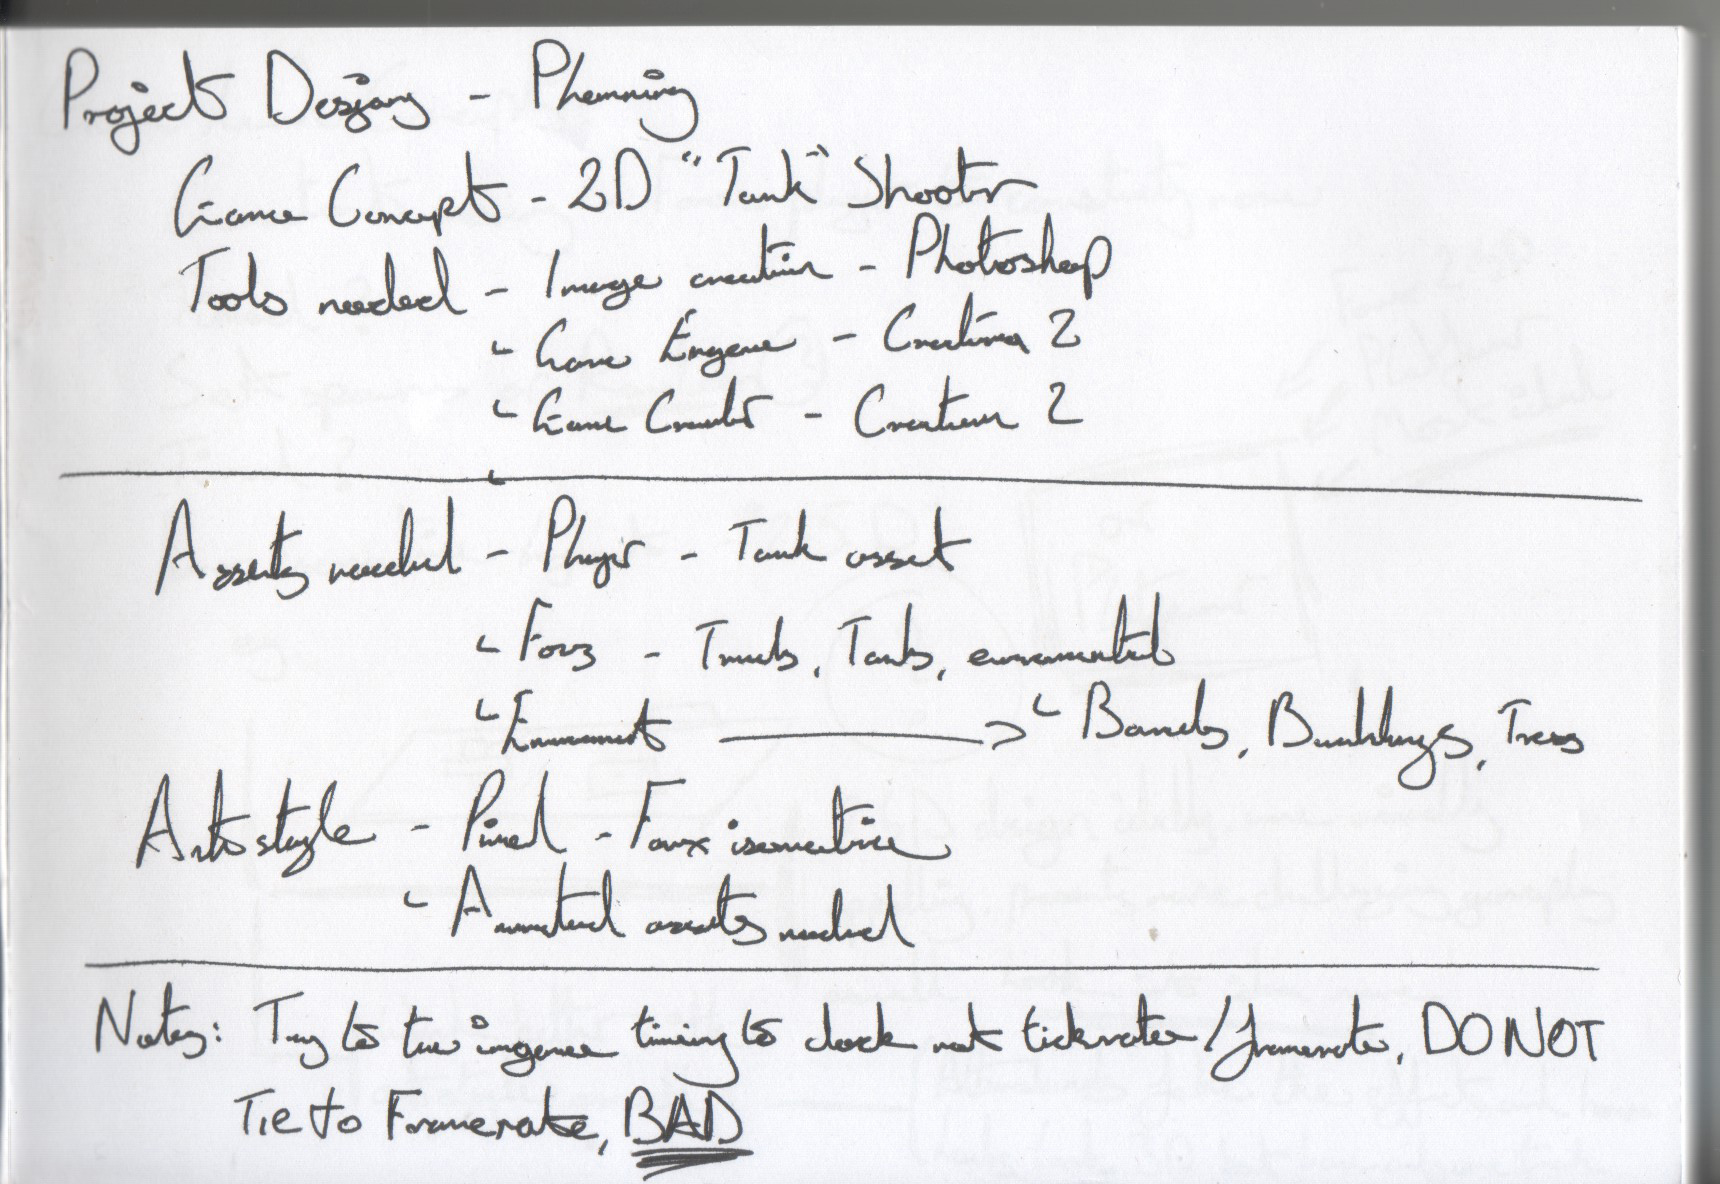 Project Design - Planning
Game Concept - 2D "Tank" Shooter
Tools needed - Image creation - Photoshop
Game Engine - Creation 2
Game Creator - Creation 2
Assets needed - Player - Tank asset
Foes - Trucks, Tanks, enviromental
Enviroment → Barrels, Buildings, Trees
Art style - Pixel - Faux isometric
Animated assets needed
Notes: Try to tie ingame timing to clock not tickrate/framerate, DO NOT
Tie to Framerate, BAD